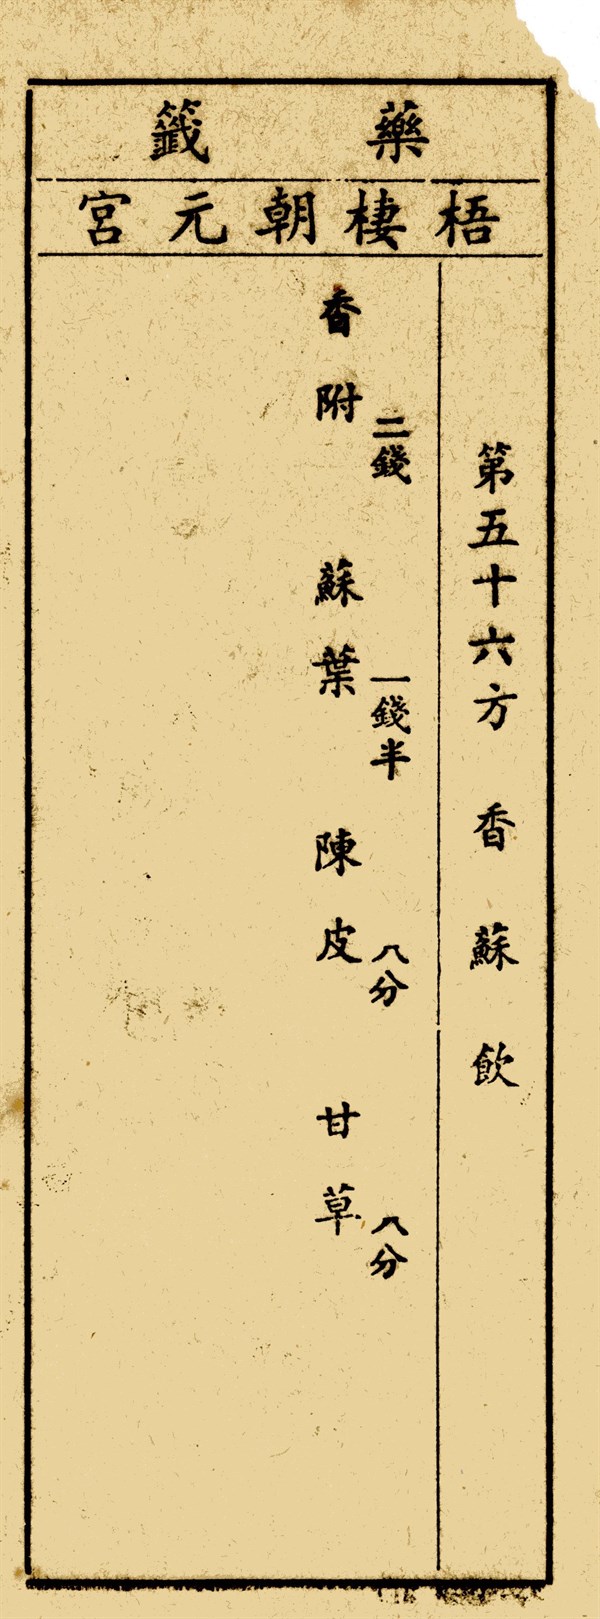 藥籤
梧棲朝元宮
第五十六方 香蘇飲
香附 二錢 蘇葉 一錢半 陳皮 八分 甘草 八分